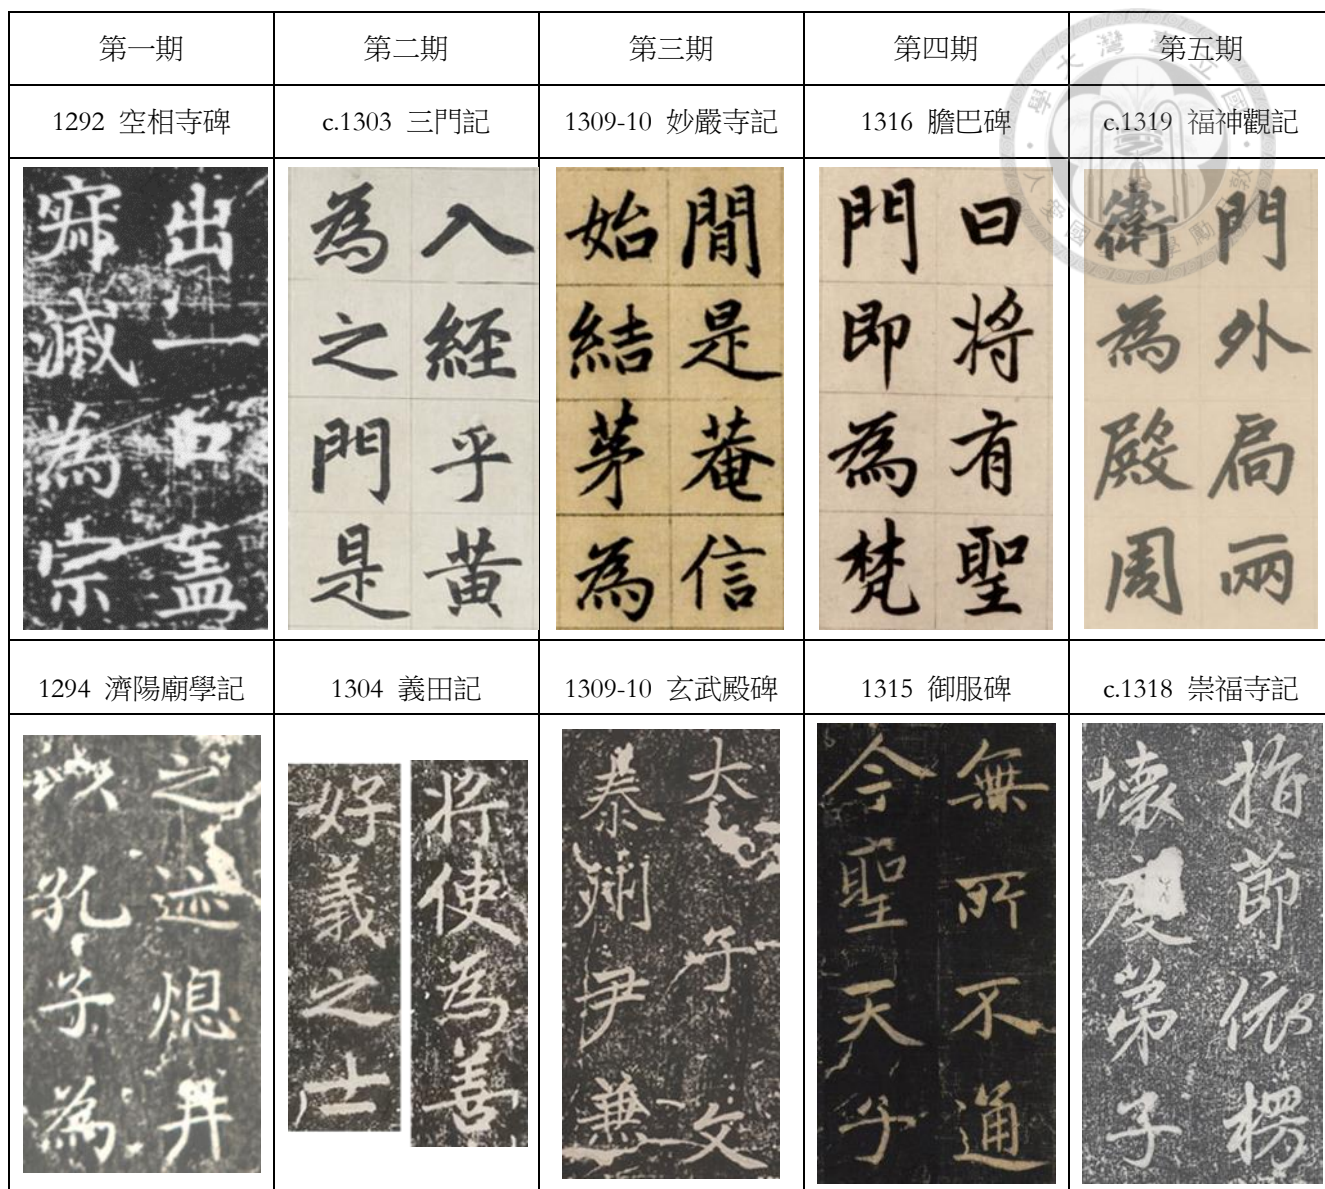 第一期 第二期 第三期 第四期 第五期
1292 空相寺碑 c.1303 三門記 1309-10 妙嚴寺記 1316 膽巴碑 c.1319 福神觀記
出一口盖
寂滅為宗
入經乎黃
為之門是
間是菴信
始結茅為
曰將有聖
門即為梵
門外局兩
衛為殿周
1294 濟陽廟學記 1304 義田記 1309-10 玄武殿碑 1315 御服碑 c.1318 崇福寺記
之迹熄井
以孔子為
將使為善
好義之士
大子文
泰州尹兼
無所不通
今聖天子
指節依楞
壞度弟子